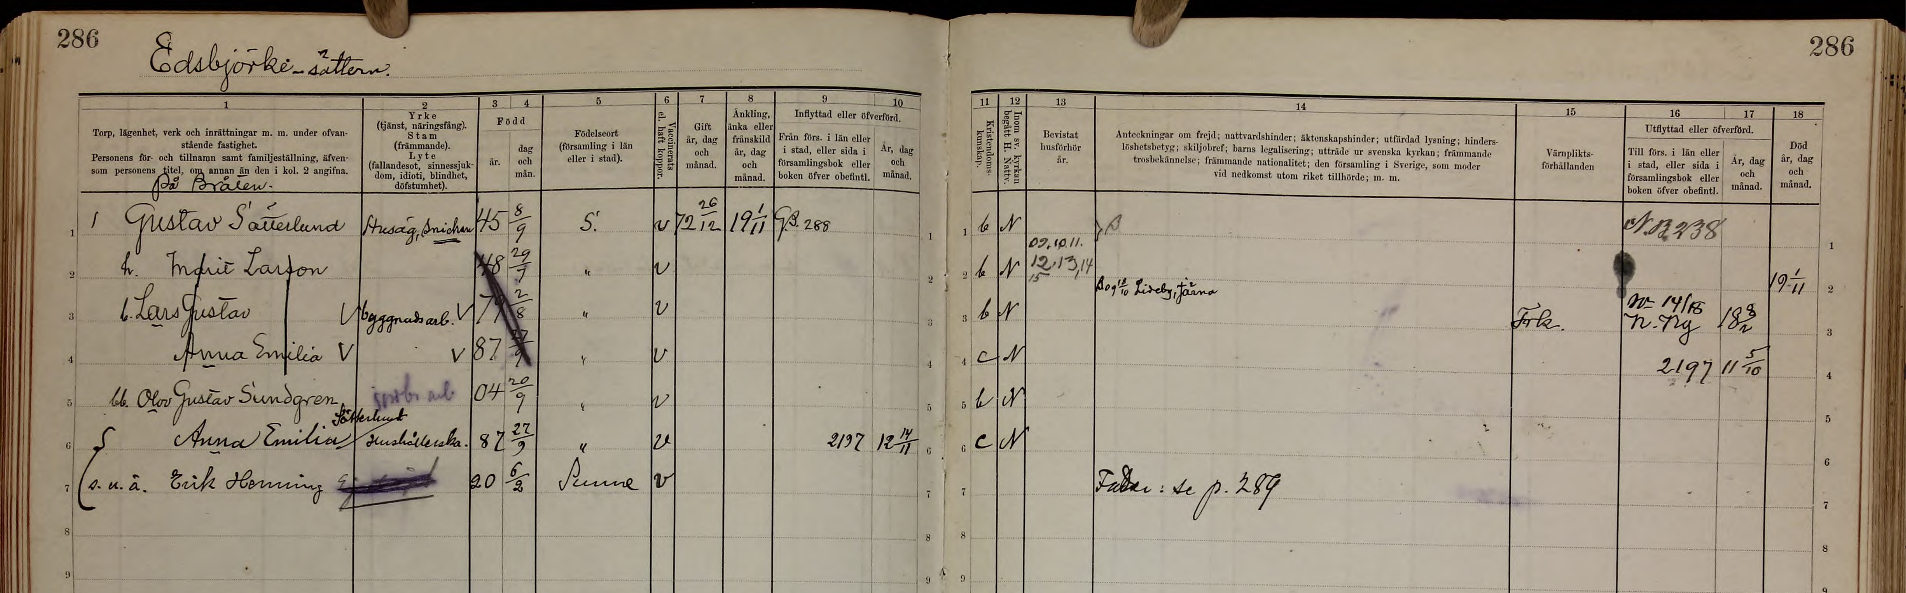 286
286
Edsbjörke-sättern.
1 2 3 4 5 6 7 8 9 10
Torp, lägenhet, verk och inrättningar m. m. under ofvanstående fastighet.
Personens för- och tillnamn samt familjeställning, äfvensom personens titel, om annan än den i kol. 2 angifna.
Yrke
(tjänst, näringsfång).
Stam
(främmande).
Lyte
(fallandesot, sinnessjukdom, idioti, blindhet, döfstumhet).
Född
år.
dag och mån.
Födelseort
(församling i län eller i stad).
Vaccinerats el. haft koppor.
Gift
år, dag och månad.
Änkling, änka eller frånskild
år, dag och månad.
Inflyttad eller öfverförd.
Från förs. i län eller i stad, eller sida i församlingsbok eller boken öfver obefintl.
År, dag och månad.
11 12 13 14 15 16 17 18
Kristendomskunskap.
Inom sv. kyrkan begått H. Nattv.
Bevistat husförhör år.
Anteckningar om frejd; nattvardshinder; äktenskapshinder; utfärdad lysning; hinderslöshetsbetyg; skiljobref; barns legalisering; utträde ur svenska kyrkan; främmande trosbekännelse; främmande nationalitet; den församling i Sverige, som moder vid nedkomst utom riket tillhörde; m. m.
Värnpliktsförhållanden
Utflyttad eller öfverförd.
Till förs. i län eller i stad, eller sida i församlingsbok eller boken öfver obefintl.
År, dag och månad.
Död
år, dag och månad.
På Bråten.
1 Gustav Sätterlund Husäg, Snickare 45 8/9 S. v 72 26/12 19 1/11 GB. 288 1 1 b N B N.B. 238 1
2 h. Marit Larson 48 29/7 " v 2 2 b N 09. 10. 11. 12. 13, 14 15 19 1/11 2
3 b. Lars Gustav V byggnadsarb. V 79 2/8 " v 3 3 b N Lideby, Järna Frk. N. Ny 18 8/2 3
4 Anna Emilia V V 87 27/9 " v 4 4 c N 2197 11 5/10 4
5 bb. Olov Gustav Sundgren 04 20/9 " v 5 5 b N 5
Sätterlund
6 Anna Emilia Hushållerska. 87 27/9 " v 2197 12 14/11 6 6 c N 6
7 s. u. ä. Erik Henning 20 6/2 Sunne v 7 7 Fader: se p. 289 7
8 8 8 8
9 9 9 9